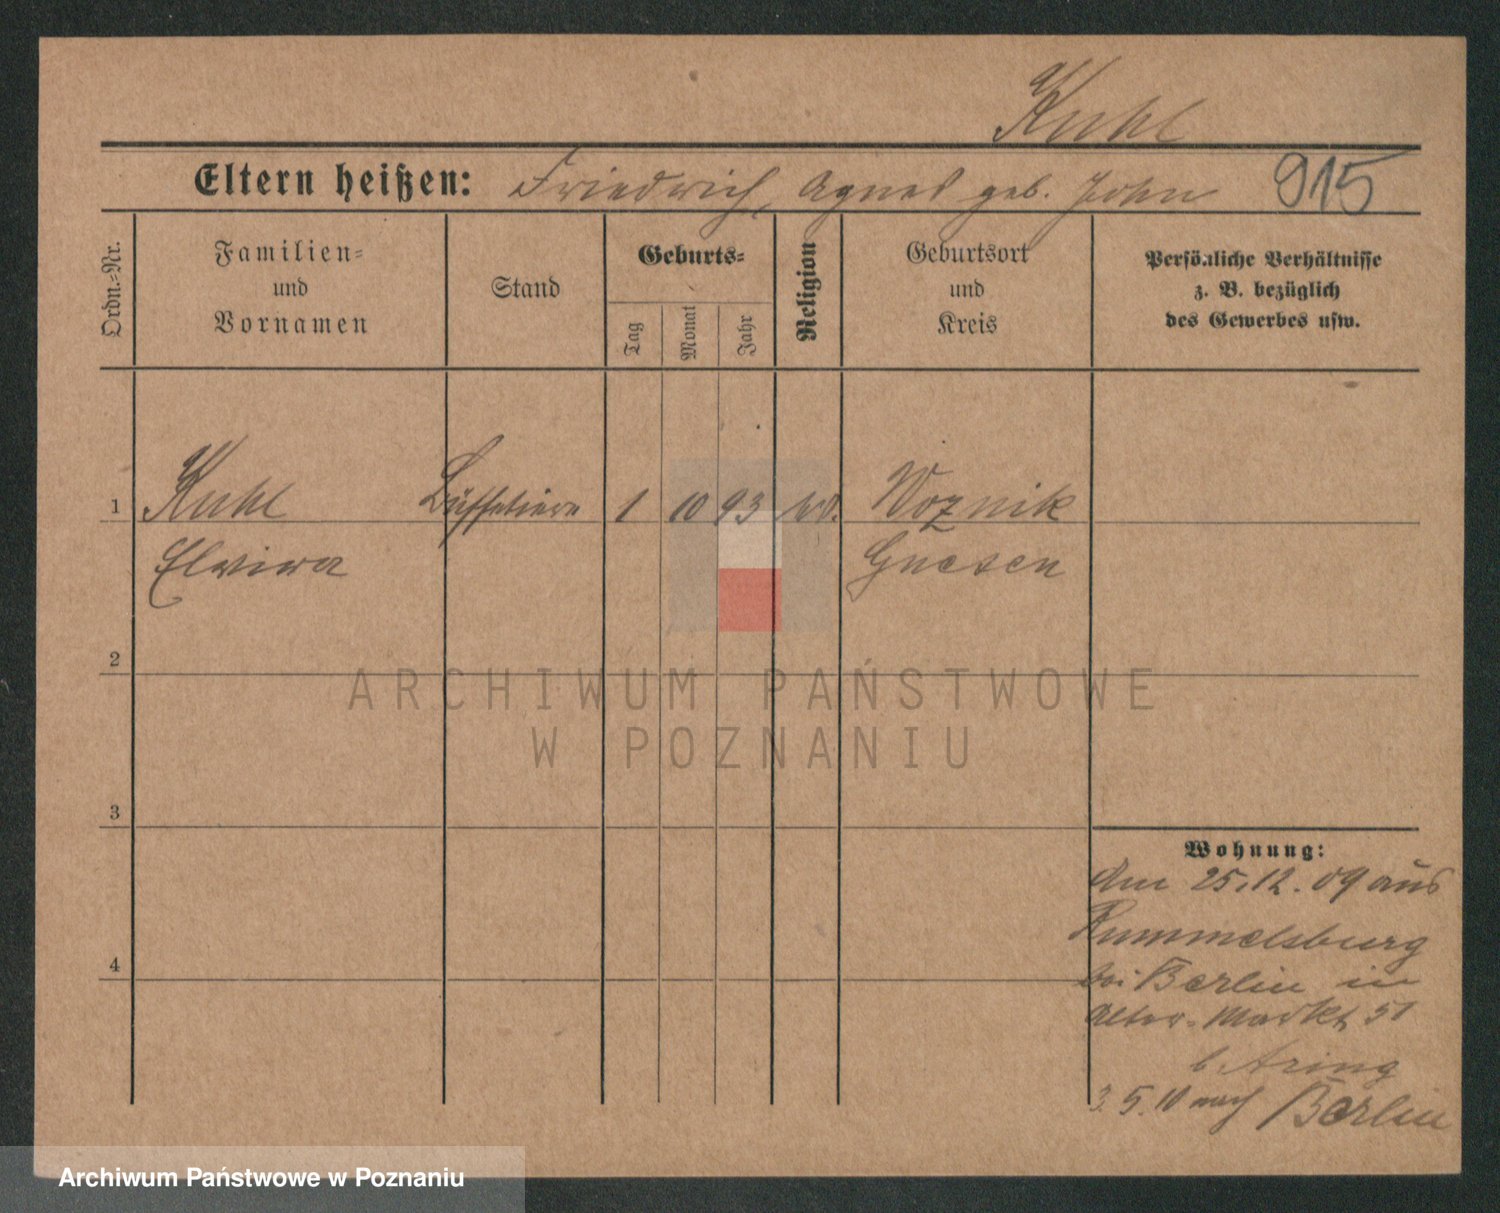 Kuhl
Eltern heißen: Friedrich, Agnes geb. John 915
Ordn.-Nr.
Familien-
und
Vornamen
Stand
Geburts-
Tag
Monat
Jahr
Religion
Geburtsort
und
Kreis
Persönliche Verhältnisse
z. B. bezüglich
des Gewerbes usw.
1 Kuhl Büffetiere 1 10 93 Woznik
Elvira Gnesen
2
ARCHIWUM PAŃSTWOWE
W POZNANIU
3
Wohnung:
Am 25.12.09 aus
Rummelsburg
4
bei Berlin in
Alter-Markt 51
b Aring
3.5.10 nach Berlin
Archiwum Państwowe w Poznaniu